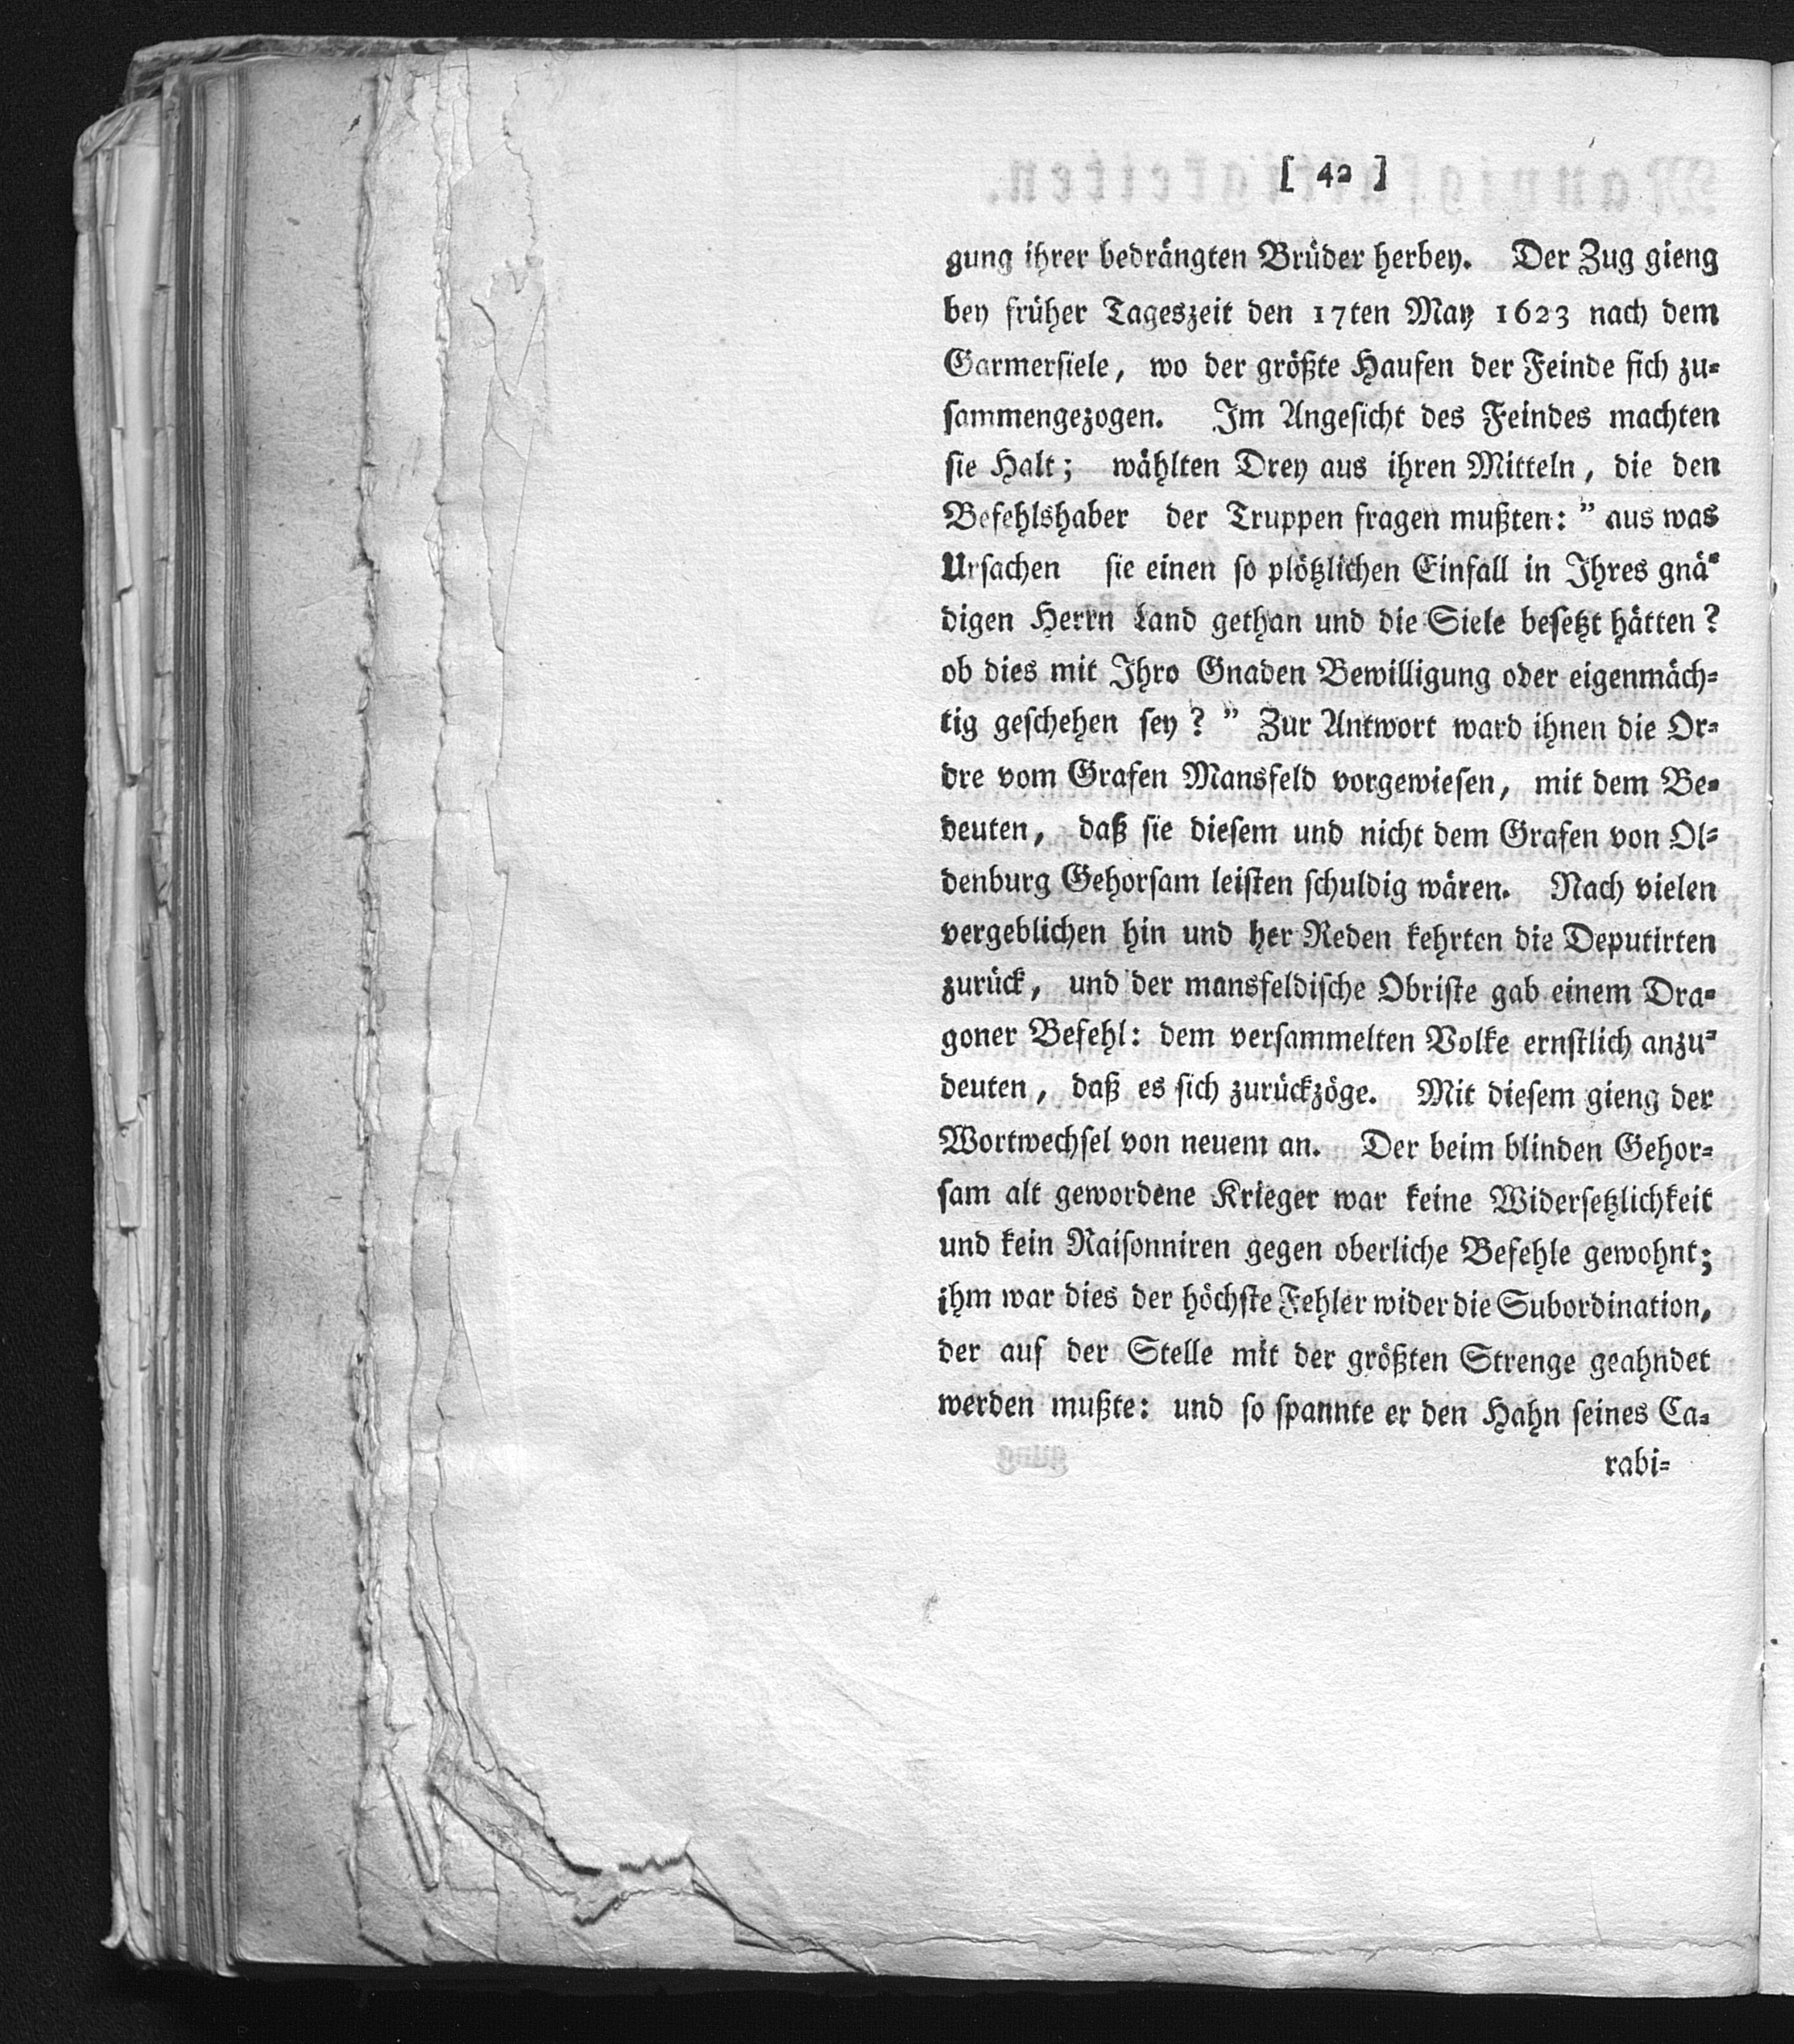 [ 42 ]
gung ihrer bedrängten Brüder herbey. Der Zug gieng
bey früher Tageszeit den 17ten May 1623 nach dem
Garmersiele, wo der größte Haufen der Feinde sich zu-
sammengezogen. Im Angesicht des Feindes machten
sie Halt; wählten Drey aus ihren Mitteln, die den
Befehlshaber der Truppen fragen mußten: ” aus was
Ursachen sie einen so plötzlichen Einfall in Ihres gnä-
digen Herrn Land gethan und die Siele besetzt hätten?
ob dies mit Ihro Gnaden Bewilligung oder eigenmäch-
tig geschehen sey? ” Zur Antwort ward ihnen die Or-
dre vom Grafen Mansfeld vorgewiesen, mit dem Be-
deuten, daß sie diesem und nicht dem Grafen von Ol-
denburg Gehorsam leisten schuldig wären. Nach vielen
vergeblichen hin und her Reden kehrten die Deputirten
zurück, und der mansfeldische Obriste gab einem Dra-
goner Befehl: dem versammelten Volke ernstlich anzu-
deuten, daß es sich zurückzöge. Mit diesem gieng der
Wortwechsel von neuem an. Der beim blinden Gehor-
sam alt gewordene Krieger war keine Widersetzlichkeit
und kein Raisonniren gegen oberliche Befehle gewohnt;
ihm war dies der höchste Fehler wider die Subordination,
der auf der Stelle mit der größten Strenge geahndet
werden mußte: und so spannte er den Hahn seines Ca-
rabi-